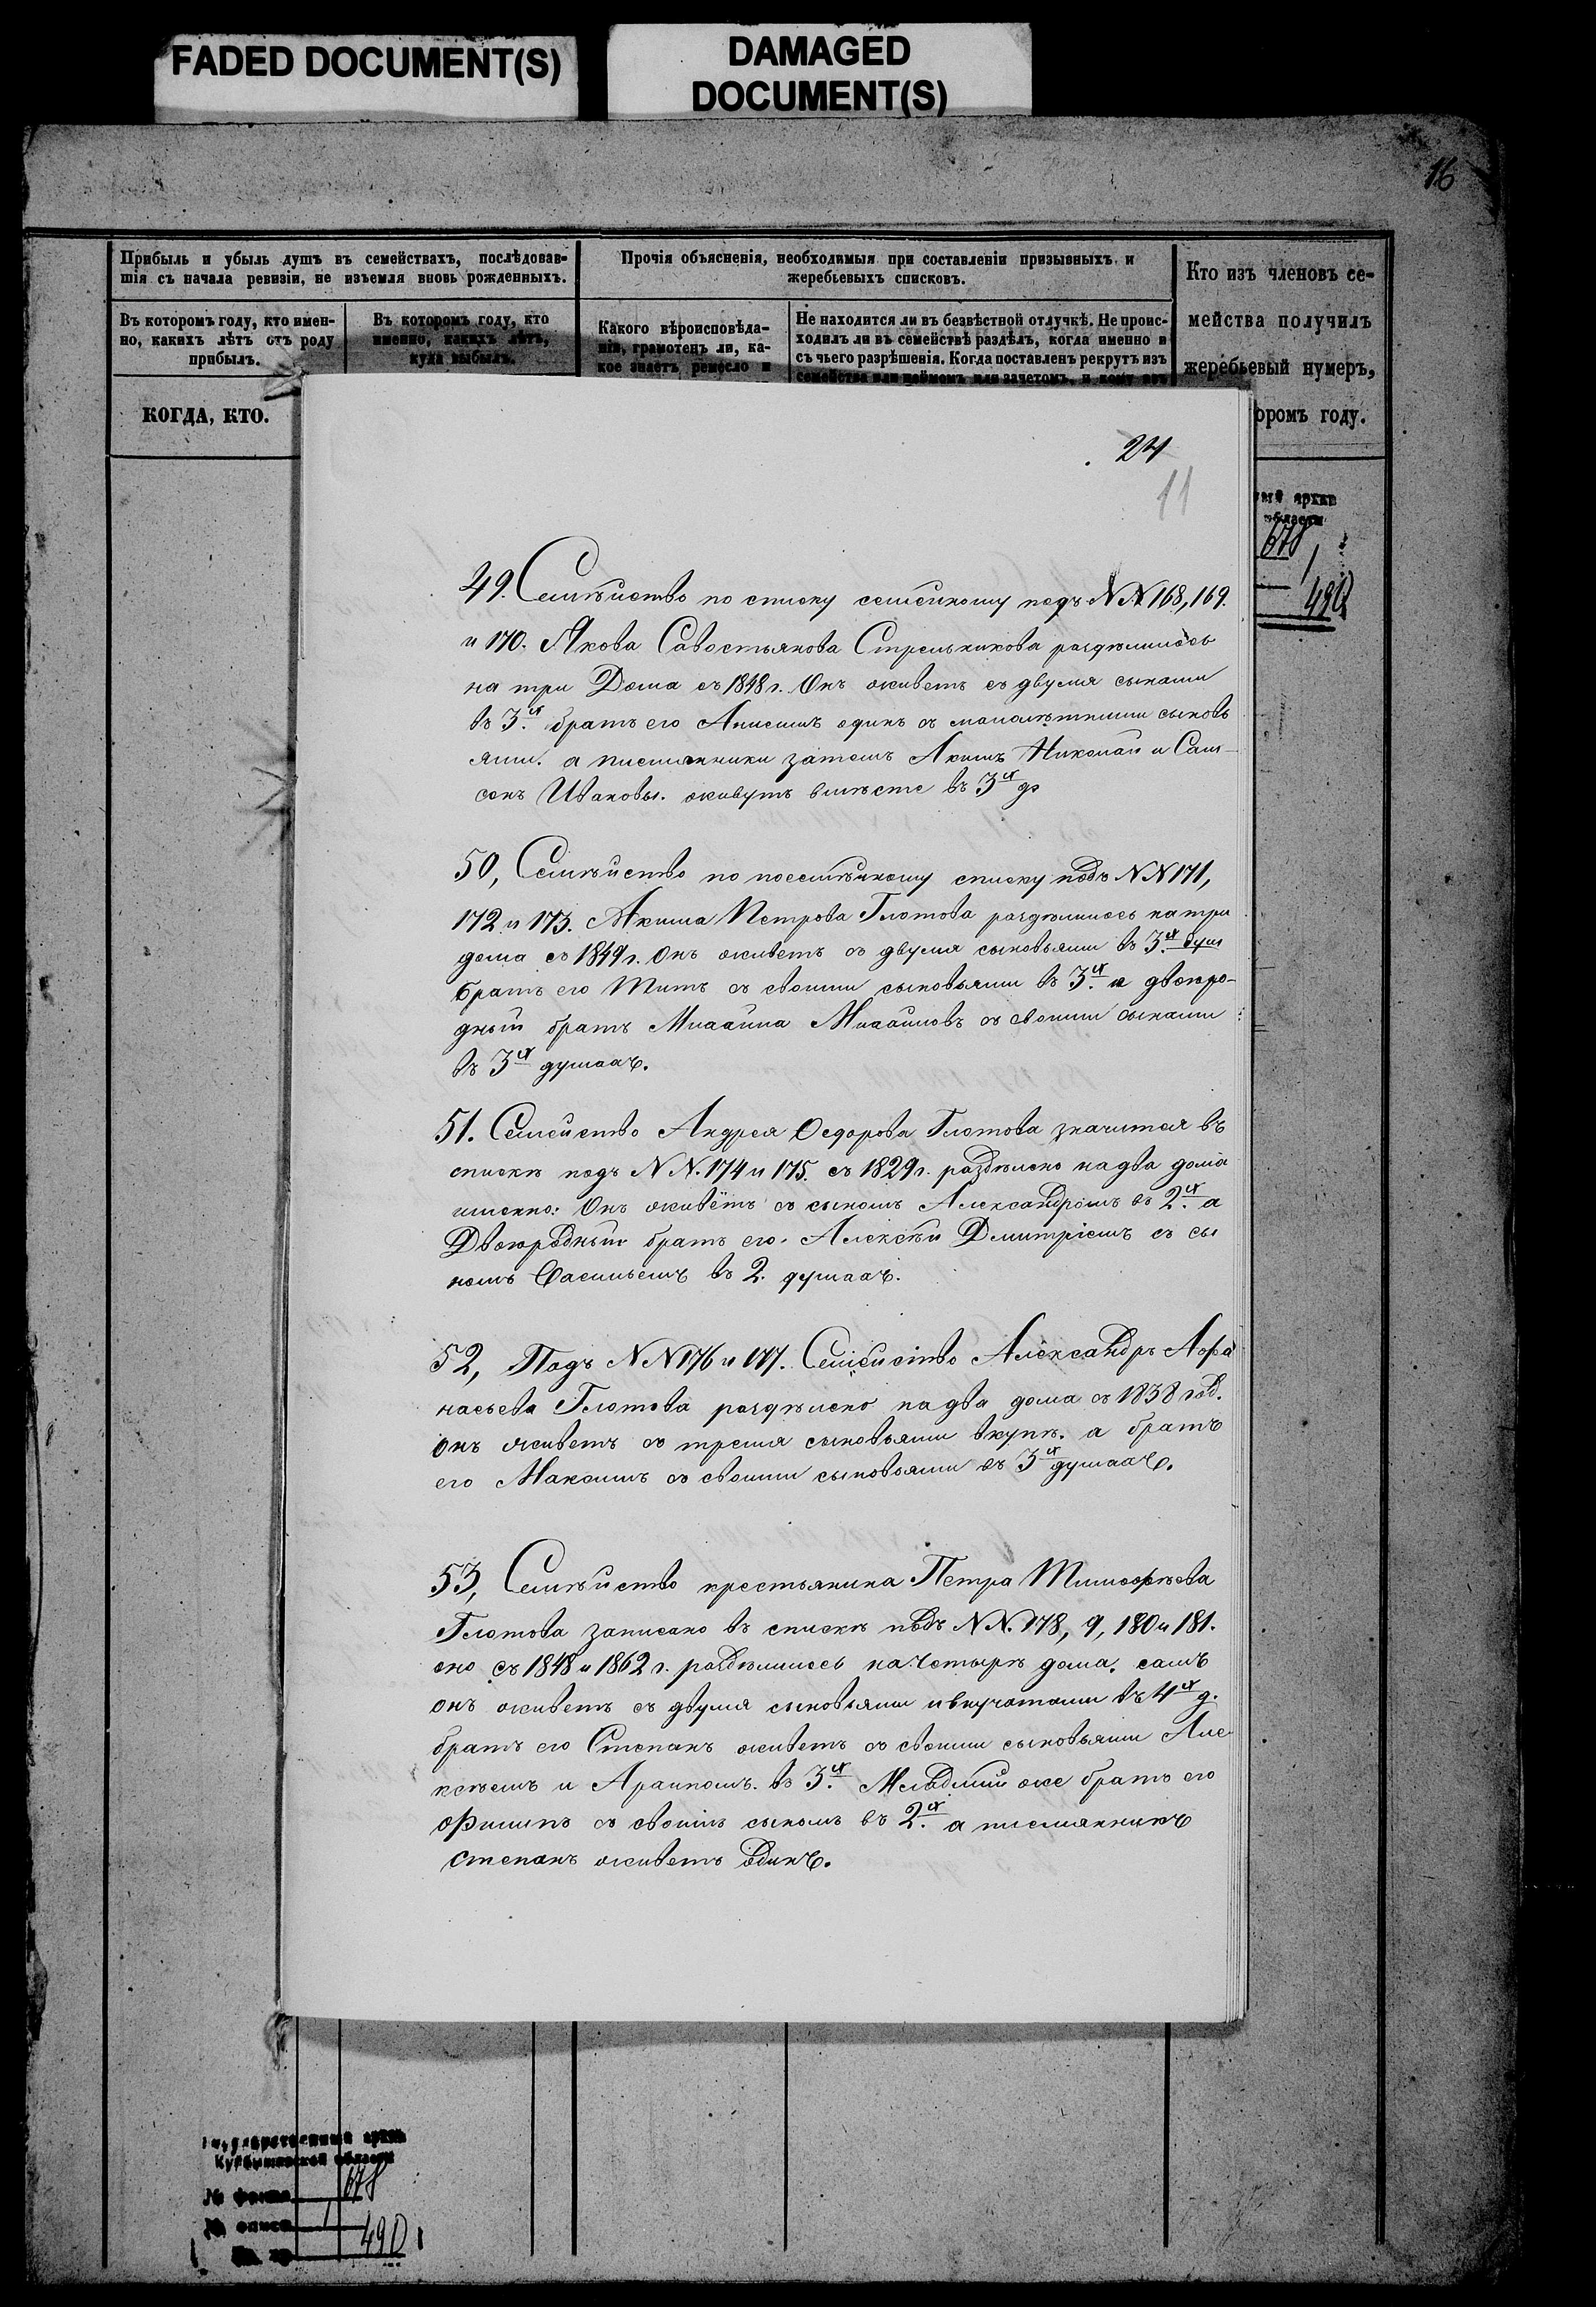 FADED DOCUMENT(S)
DAMAGED
DOCUMENT(S)
16
Прибыль и убыль душъ въ семействахъ, послѣдовав-
шія съ начала ревизіи, не изъемля вновь рожденныхъ.
Прочія объясненія, необходимыя при составленіи призывныхъ и
жеребьевыхъ списковъ.
Кто изъ членовъ се-
мейства получилъ
жеребьевый нумеръ,
оромъ году.
Въ которомъ году, кто имен-
но, какихъ лѣтъ отъ роду
прибылъ.
Въ которомъ году, кто
именно, какихъ лѣтъ,
куда выбылъ.
Какого вѣроисповѣда-
нія, грамотенъ ли, ка-
кое знаетъ ремесло и
Не находится ли въ безвѣстной отлучкѣ. Не проис-
ходилъ ли въ семействѣ раздѣлъ, когда именно и
съ чьего разрѣшенія. Когда поставленъ рекрутъ изъ
семейства или наймомъ или зачетомъ, и кому
КОГДА, КТО.
24
11
области
678
1
490
49. Семѣйство по списку семейному подъ N N 168, 169.
и 170. Якова Савостьянова Стрельникова раздѣлилось
на три Дома съ 1848 г. Онъ живетъ съ двумя сынами
въ 3.х братъ его Анисимъ одинъ съ малолѣтними сыновь
ями. а племянники затемъ Акимъ Николай и Сам-
сонъ Ивановы. живутъ вмѣсте въ 3х д
50, Семѣйство по посемѣйному списку подъ N N 171,
172 и 173. Акима Петрова Глотова раздѣлилось на три
дома съ 1849 г. Онъ живетъ съ двумя сыновьями въ 3.х душ
братъ его Титъ съ своими сыновьями въ 3.х а двоюро-
дный братъ Михайла Михайловъ съ своими сынами
въ 3х душахъ.
51. Семейство Андрея Федорова Глотова значится въ
спискѣ подъ N N. 174 и 175. съ 1829 г. раздѣлено на два дома
именно: Онъ живётъ съ сыномъ Александромъ въ 2.х а
Двоюродный братъ его Алексѣй Дмитріемъ съ сы
номъ Васильемъ въ 2. душахъ.
52, Подъ N N 176 и 177. Семейство Александръ Афа
насьева Глотова раздѣлено на два дома съ 1838 год.
онъ живетъ съ тремя сыновьями вкупѣ. а братъ
его Максимъ съ своими сыновьями въ 3х душахъ.
53, Семѣйство крестьянина Петра Тимофѣева
Глотова записано въ спискѣ подъ N N. 178, 9, 180 и 181.
оно съ 1848 и 1862 г. раздѣлилось на четырѣ дома. самъ
онъ живетъ съ двумя сыновьями и внучатами въ 4х д.
братъ его Степанъ живетъ съ своими сыновьями Але
ксѣемъ и Архипомъ. въ 3.х Младший же братъ его
Филипъ съ своімъ сыномъ въ 2.х а племянникъ
степанъ живетъ одинъ.
Государственный архив
Курганской области
№ фонда 678
№ описи 1
490